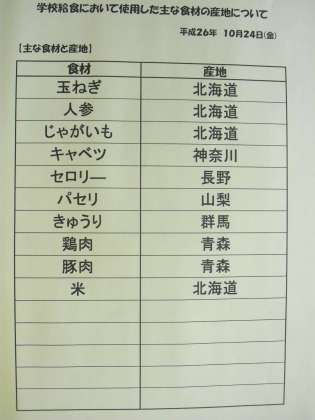 学校給食において使用した主な食材の産地について
平成26年 10月24日(金)
【主な食材と産地】
食材 産地
玉ねぎ 北海道
人参 北海道
じゃがいも 北海道
キャベツ 神奈川
セロリー 長野
パセリ 山梨
きゅうり 群馬
鶏肉 青森
豚肉 青森
米 北海道